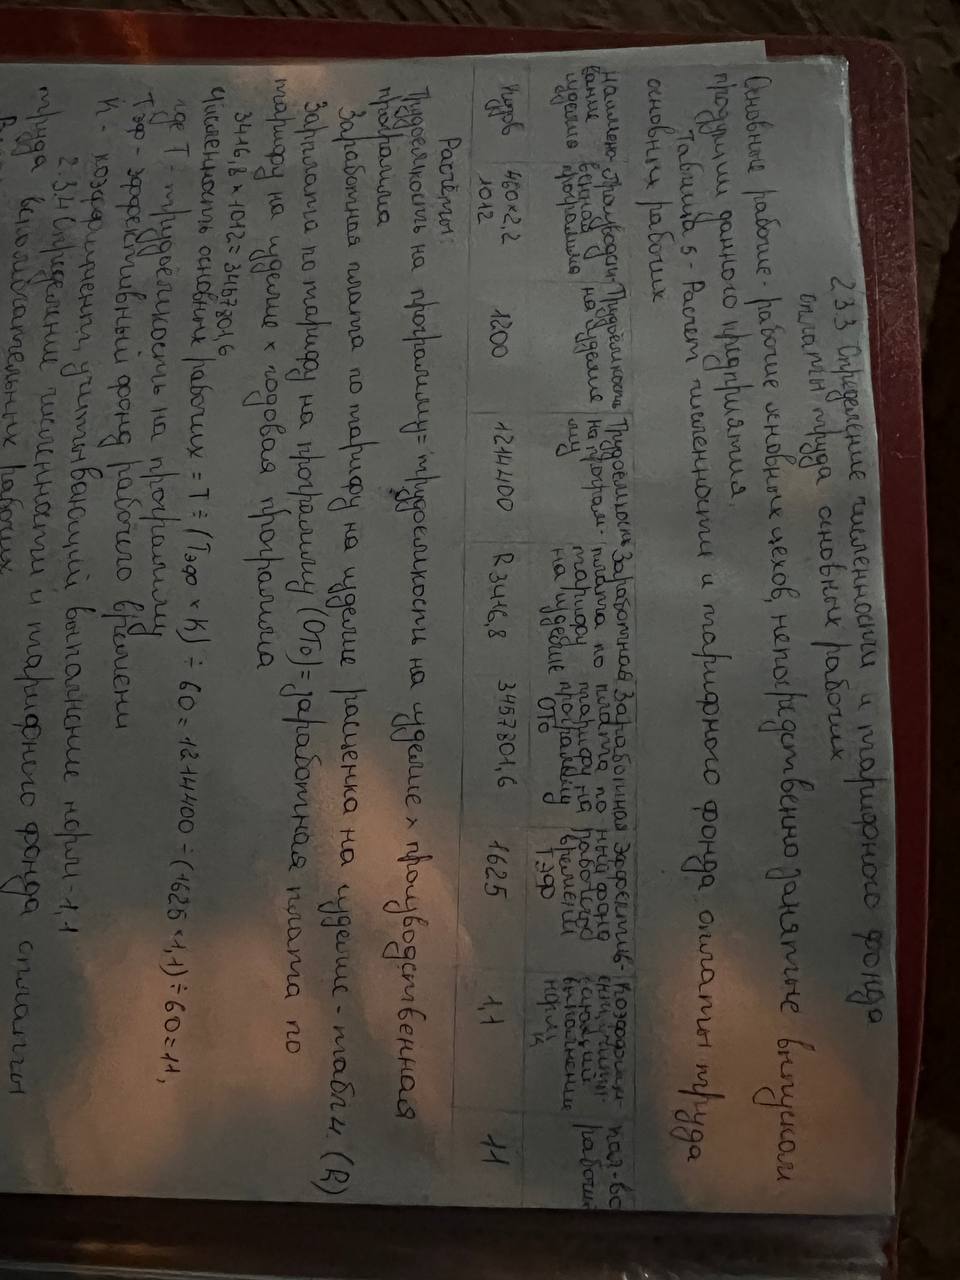 2.3.3 Определение численности и тарифного фонда
оплаты труда основных рабочих
Основные рабочие - рабочие основных цехов, непосредственно занятые выпуском
продукции данного предприятия.
Таблица 5 - Расчет численности и тарифного фонда оплаты труда
основных рабочих
Наимено-
вание
изделия
Производст-
венная
программа
Трудоёмкость
на изделие
Трудоёмкость
на програм-
му
Заработная
плата по
тарифу
на изделие
Заработная
плата по
тарифу на
программу
ОТо
Эффектив-
ный фонд
рабочего
времени
ТЭФ
Коэффици-
ент, учиты-
вающий
выполнение
норм
К
Кол-во
рабочих
Кузов
460×2,2
1012
1200
1214400
R 3416,8
3457801,6
1625
1,1
11
Расчёты:
Трудоёмкость на программу = трудоёмкость на изделие × производственная
программа
Заработная плата по тарифу на изделие расценка на изделие - табл 4. (R)
Зарплата по тарифу на программу (ОТо) = заработная плата по
тарифу на изделие × годовая программа
3416,8 × 1012 = 3457801,6
Численность основных рабочих = Т ÷ (Тэфо × К) ÷ 60 = 1214400 ÷ (1625 × 1,1) ÷ 60 = 11,
где Т - трудоёмкость на программу
Тэф - эффективный фонд рабочего времени
К - коэффициент, учитывающий выполнение норм - 1,1
2.3.4 Определение численности и тарифного фонда оплаты
труда вспомогательных рабочих